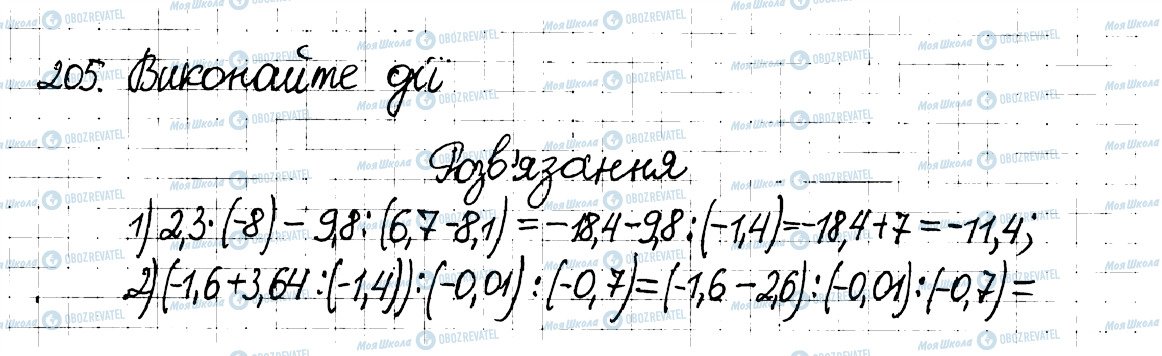 205. Виконайте дії
Розв'язання
1) 2,3·(-8) - 9,8:(6,7-8,1) = -18,4-9,8:(-1,4)=-18,4+7 = -11,4;
2) (-1,6+3,64:(-1,4)):(-0,01):(-0,7)=(-1,6-2,6):(-0,01):(-0,7)=